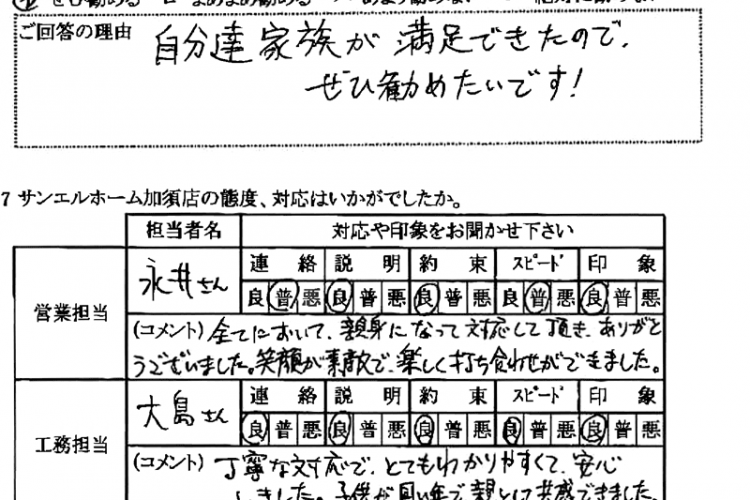 ① ぜひ勧める
ご回答の理由 自分達家族が満足できたので、
ぜひ勧めたいです！
7 サンエルホーム加須店の態度、対応はいかがでしたか。
担当者名 対応や印象をお聞かせ下さい
営業担当 永井さん 連絡 説明 約束 スピード 印象
良 普 悪 良 普 悪 良 普 悪 良 普 悪 良 普 悪
(コメント) 全てにおいて、親身になって対応して頂き、ありがと
うございました。笑顔が素敵で、楽しく打ち合わせができました。
工務担当 大島さん 連絡 説明 約束 スピード 印象
良 普 悪 良 普 悪 良 普 悪 良 普 悪 良 普 悪
(コメント) 丁寧な対応で、とてもわかりやすくて、安心
しました。子供が同い年で親として共感できました